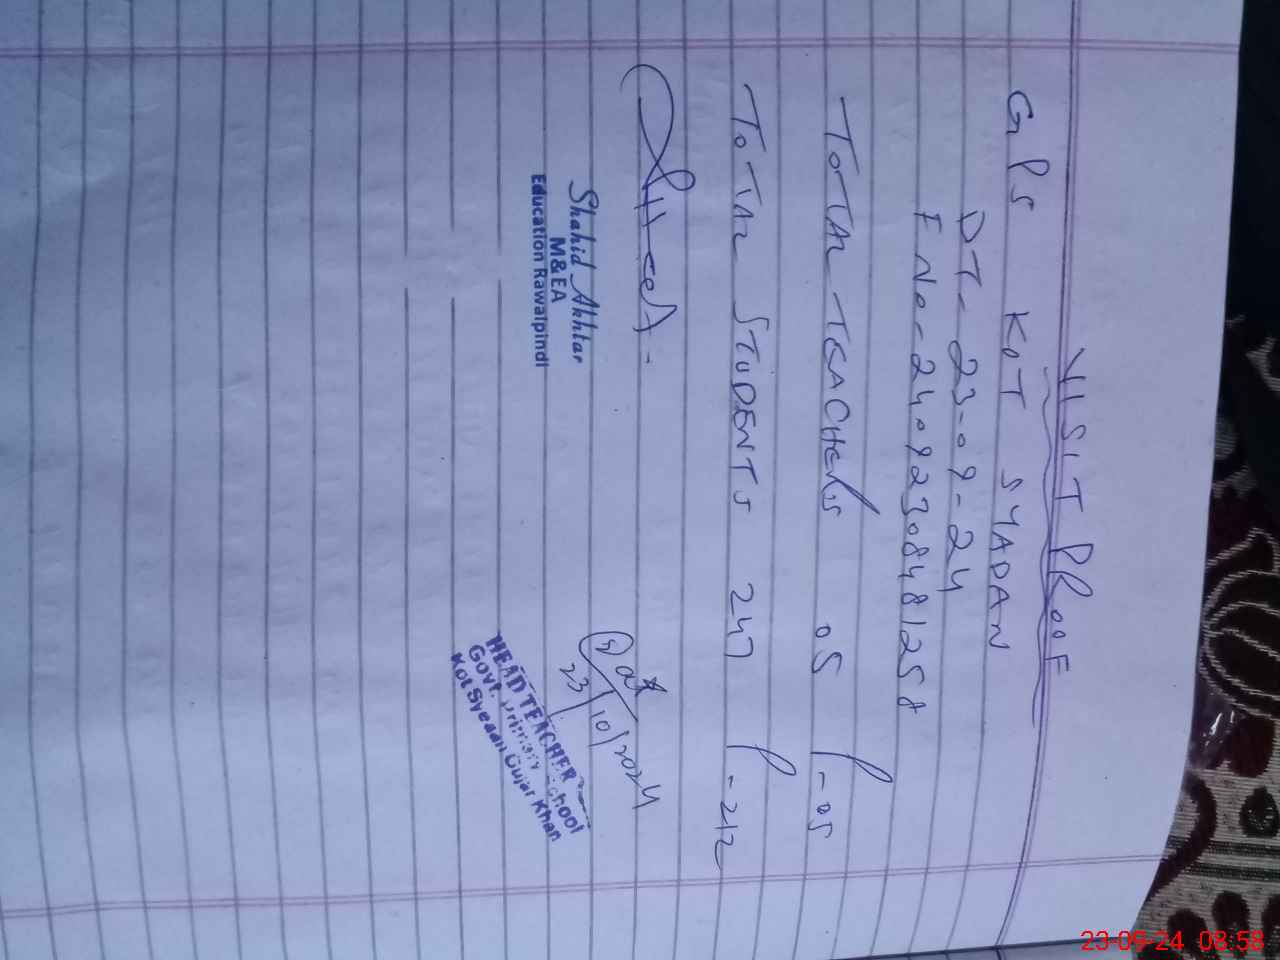 VISIT PROOF
GPS KOT SYADAN
DT- 23-09-24
F No- 24092308481258
TOTAL TEACHERS 05 P-05
TOTAL STUDENTS 247 P-212
Shahid Akhtar
M&EA
Education Rawalpindi
23/10/2024
HEAD TEACHER
Govt. primary school
Kot Syedan Gujar Khan
23-09-24 08:58